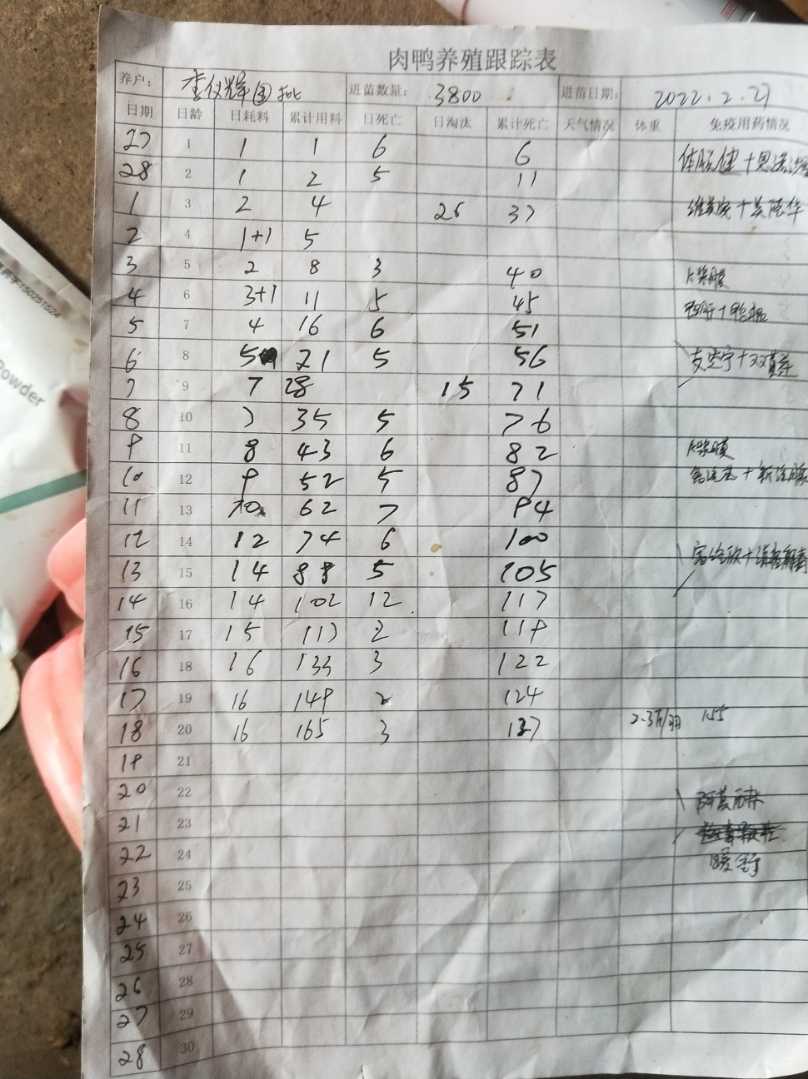 肉鸭养殖跟踪表
养户： 进苗数量： 3800 进苗日期： 2022.2.27
日期 日龄 日耗料 累计用料 日死亡 日淘汰 累计死亡 天气情况 体重 免疫用药情况
27 1 1 1 6 6
28 2 1 2 5 11
1 3 2 4 26 37
2 4 1+1 5
3 5 2 8 3 40
4 6 3+1 11 5 45
5 7 4 16 6 51
6 8 5 21 5 56
7 9 7 28 15 71
8 10 7 35 5 76
9 11 8 43 6 82
10 12 9 52 5 87
11 13 10 62 7 94
12 14 12 74 6 100
13 15 14 88 5 105
14 16 14 102 12 117
15 17 15 117 2 119
16 18 16 133 3 122
17 19 16 149 2 124
18 20 16 165 3 127 1.55
19 21
20 22
21 23
22 24
23 25
24 26
25 27
26 28
27 29
28 30
Powder